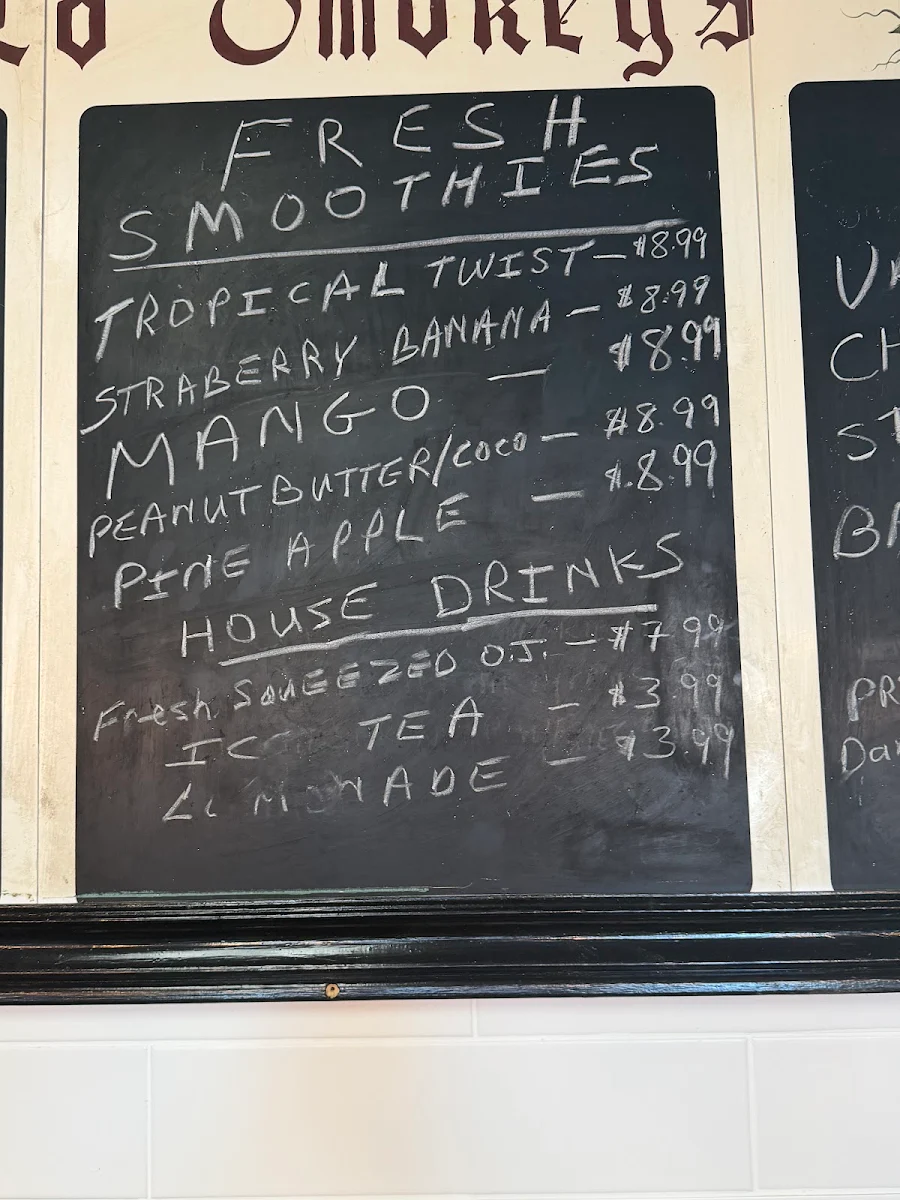 Smokeys
FRESH
SMOOTHIES
TROPICAL TWIST - $8.99
STRABERRY BANANA - $8.99
MANGO - $8.99
PEANUT BUTTER/COCO - $8.99
PINE APPLE - $8.99
HOUSE DRINKS
Fresh SQUEEZED O.J. - $7.99
ICE TEA - $3.99
LEMONADE - $3.99